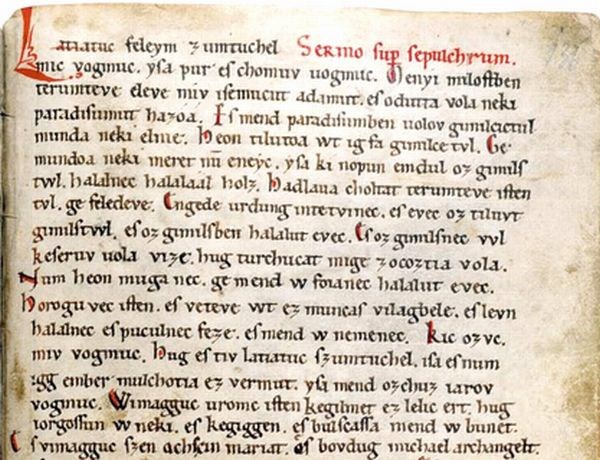 Latiatuc feleym zumtuchel Sermo sup sepulchrum.
mic vogmuc. ysa pur es chomuv uogmuc. Menyi milostben
terumteve eleve miv isemucut adamut. es odutta vola neki
paradisumut hazoa. Es mend paradisumben uolov gimilcictul
munda neki elnie. Heon tilutoa wt ig fa gimilce tvl. Ge
mundoa neki meret nu eneyc. ysa ki nopun emdul oz gimils
twl. halalnec halalaal holz. Hadlaua choltat terumteve isten
tvl. ge feledeve. Engede urdung intetvinec. es evec oz tiluvt
gimilstwl. es oz gimilsben halalut evec. Es oz gimilsnec vvl
keseruv uola vize. hug turchucat mige zocoztia vola.
Num heon muga nec. ge mend w foianec halalut evec.
Horogu vec isten. es veteve wt ez muncas vilagbele. es levn
halalnec es puculnec feze. es mend w nemenec. Kic ozvc.
miv vogmuc. Hug es tiv latiatuc szumtuchel. isa es num
igg ember mulchotia ez vermut. ysa mend ozchuz iarov
vogmuc. Wimagguc uromc isten kegilmet ez lelic ert. hug
iorgossun w neki. es kegiggen. es bulsassa mend w bunet.
Es vimagguc szen achscin mariat. es bovdug michael archangelt.